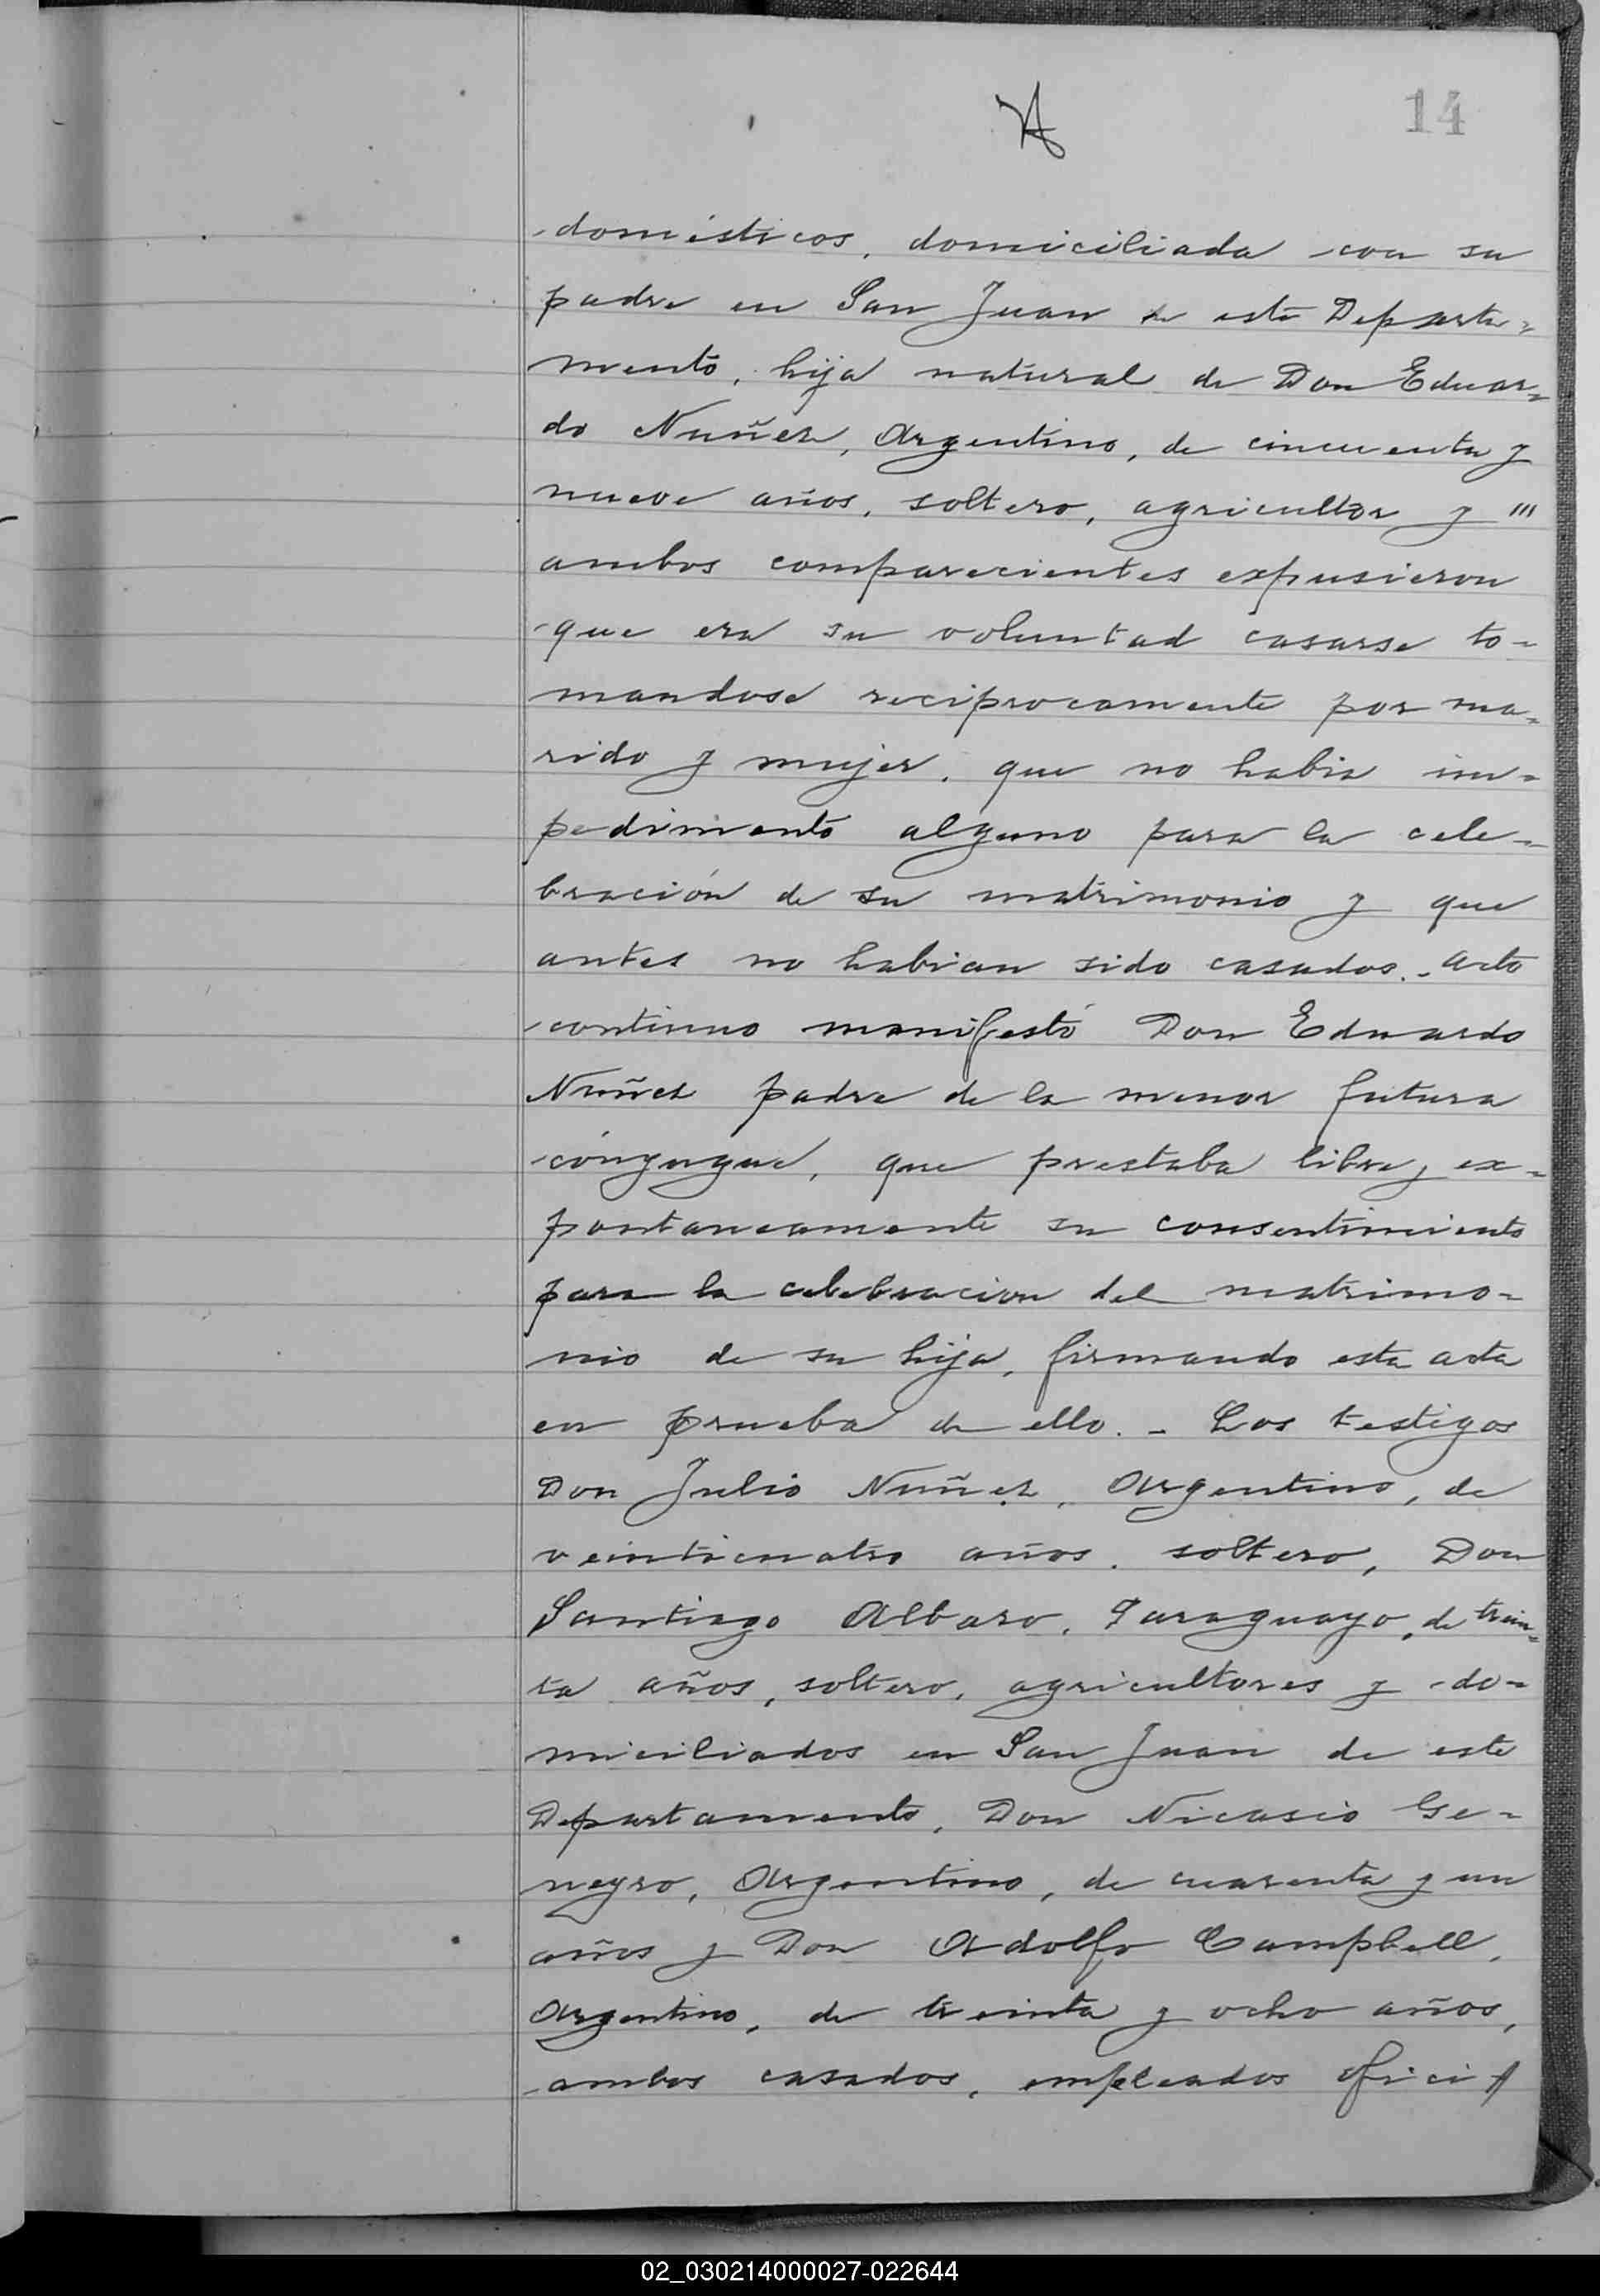 14
domésticos, domiciliada con su
padre en San Juan de este Departa-
mento, hija natural de Don Eduar-
do Nuñez, Argentino, de cincuenta y
nueve años, soltero, agricultor y "'
ambos comparecientes expusieron
que era su voluntad casarse to-
mandose reciprocamente por ma-
rido y mujer, que no habia im-
pedimento alguno para la cele-
bración de su matrimonio y que
antes no habian sido casados.- Acto
continuo manifestó Don Eduardo
Nuñez padre de la menor futura
cónyugue, que prestaba libre y ex-
pontaneamente su consentimiento
para la celebracion del matrimo-
nio de su hija, firmando esta acta
en prueba de ello. - Los testigos
Don Julio Nuñez, Argentino, de
veinticuatro años, soltero, Don
Santiago Albaro, Paraguayo, de trein-
ta años, soltero, agricultores y do-
miciliados en San Juan de este
Departamento, Don Nicasio Ge-
neyro, Argentino, de cuarenta y un
años y Don Adolfo Campbell,
Argentino, de treinta y ocho años,
ambos casados, empleados ofici
02_030214000027-022644